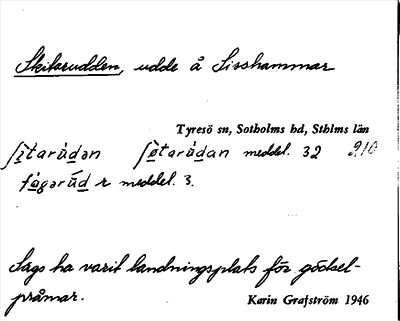 Skitarudden, udde å Lisshammar
Tyresö sn, Sotholms hd, Sthlms län
ʃìtarùdən ʃøtarùdan meddel. 32 210
fågərúd r meddel. 3.
Sägs ha varit landningsplats för gödsel-
pråmar.
Karin Grafström 1946